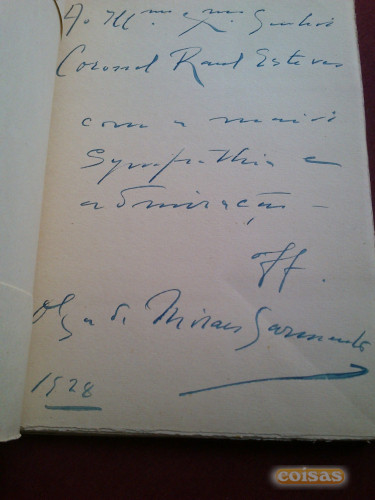 Ao Illmo e Exmo Senhor
Coronel Raul Esteves
com a maior
sympathia e
admiração –
Off.
Olga de Moraes Sarmento
1928
coisas